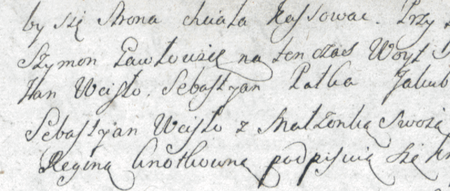 by się Strona chciała Kassowac. Przy
Szymon Pawłowicz na ten czas Woyt
Jan Weisło. Sebastyan Palka Jakub
Sebastyan Weisło z Małżonką Swoią
Reginą Knotkowną podpisuią się